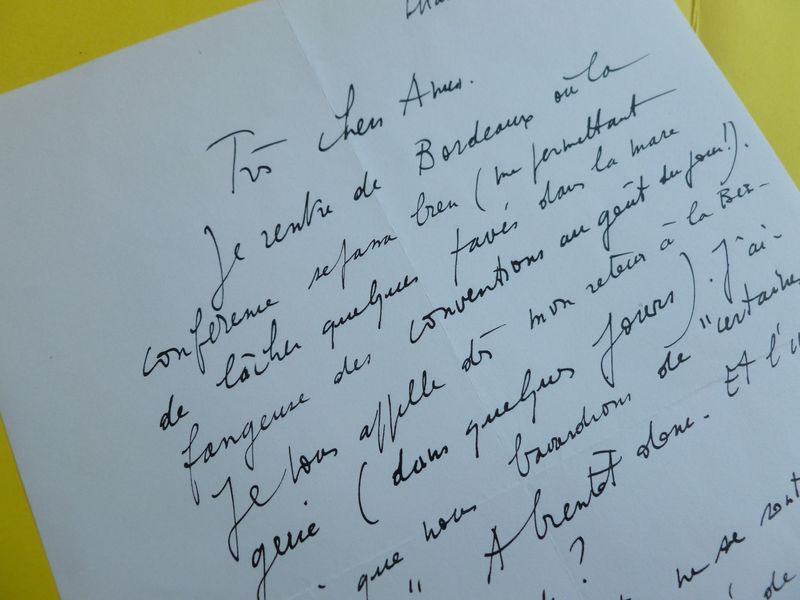 Très chers Amis.
Je rentre de Bordeaux où la
conférence se passa bien (me permettant
de lâcher quelques pavés dans la mare
fangeuse des conventions au goût du jour!).
Je vous appelle dès mon retour à la Ber-
gerie (dans quelques jours). J'ai-
que nous bavardions de "certaines
" A bientôt donc. Et l'
?
ne se sont
de